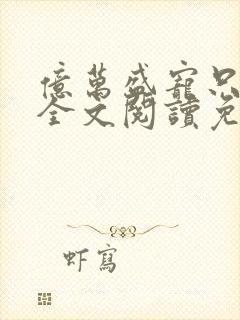 億萬盛寵只
全文閱讀免
虾寫